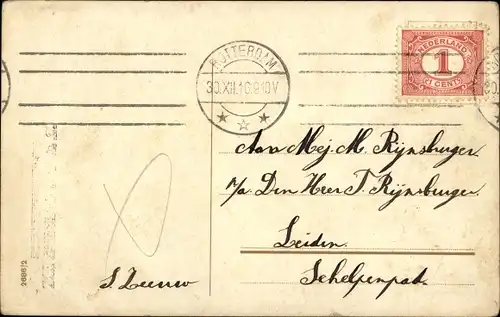 ROTTERDAM
30.XII.16.8-10V
NEDERLAND
1
CENT
Aan Mej. M. Rijnsburger
p/a Den Heer T. Rijnsburger
Leiden
Schelpenpad.
S. Leeuw
2686/2